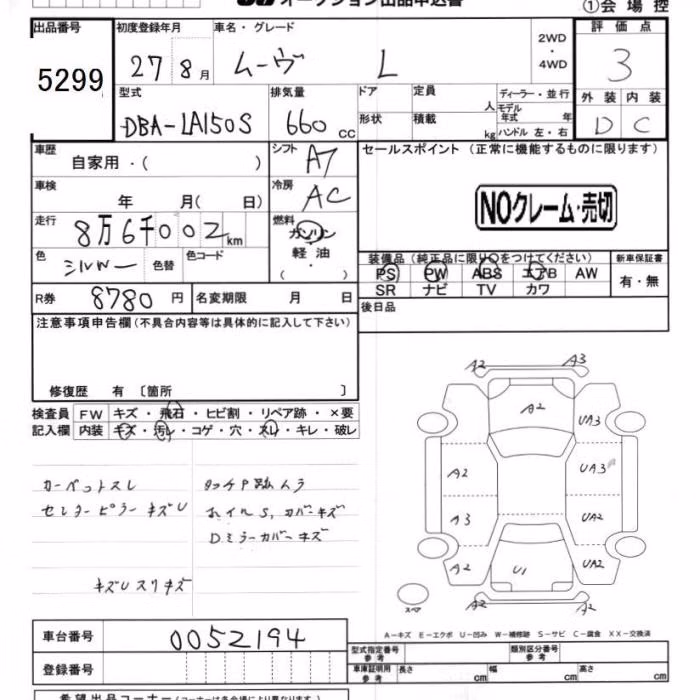 オークション出品申込書
①会場控
出品番号 初度登録年月 車名・グレード 2WD・4WD 評価点
5299 27 8月 ムーヴ L 3
型式 排気量 ドア 定員 人 ディーラー・並行 外装 内装
DBA-LA150S 660cc 形状 積載 kg モデル年式 年 ハンドル 左・右 D C
車歴 自家用・( ) シフト A7 セールスポイント(正常に機能するものに限ります)
車検 年 月( 日) 冷房 AC
NOクレーム・売切
走行 8万6千002km 燃料 ガソリン
軽油
( ・ )
色 シルバー 色替 色コード
装備品(純正品に限り○をつけてください) 新車保証書
PS PW ABS エアB AW 有・無
SR ナビ TV カワ
R券 8780円 名変期限 月 日
後日品
注意事項申告欄(不具合内容等は具体的に記入して下さい)
修復歴 有 〔箇所 〕
検査員 FW キズ・飛石・ヒビ割・リペア跡・×要
記入欄 内装 キズ・汚レ・コゲ・穴・スレ・キレ・破レ
カーペットスレ タッチP跡ムラ
センターピラーキズU ホイルS,カバーキズ
Dミラーカバーキズ
キズUスリキズ
A2 A3
A2 UA3
A2 UA3
A3 UA2
A2 U1 UA2
A2 A2
スペア
A-キズ E-エクボ U-凹み W-補修跡 S-サビ C-腐食 XX-交換済
車台番号 0052194
登録番号
型式指定番号 参考 類別区分番号 参考
車庫証明用 参考 長さ cm 幅 cm 高さ cm
希望出品コーナー(コーナーは会場により異なります)